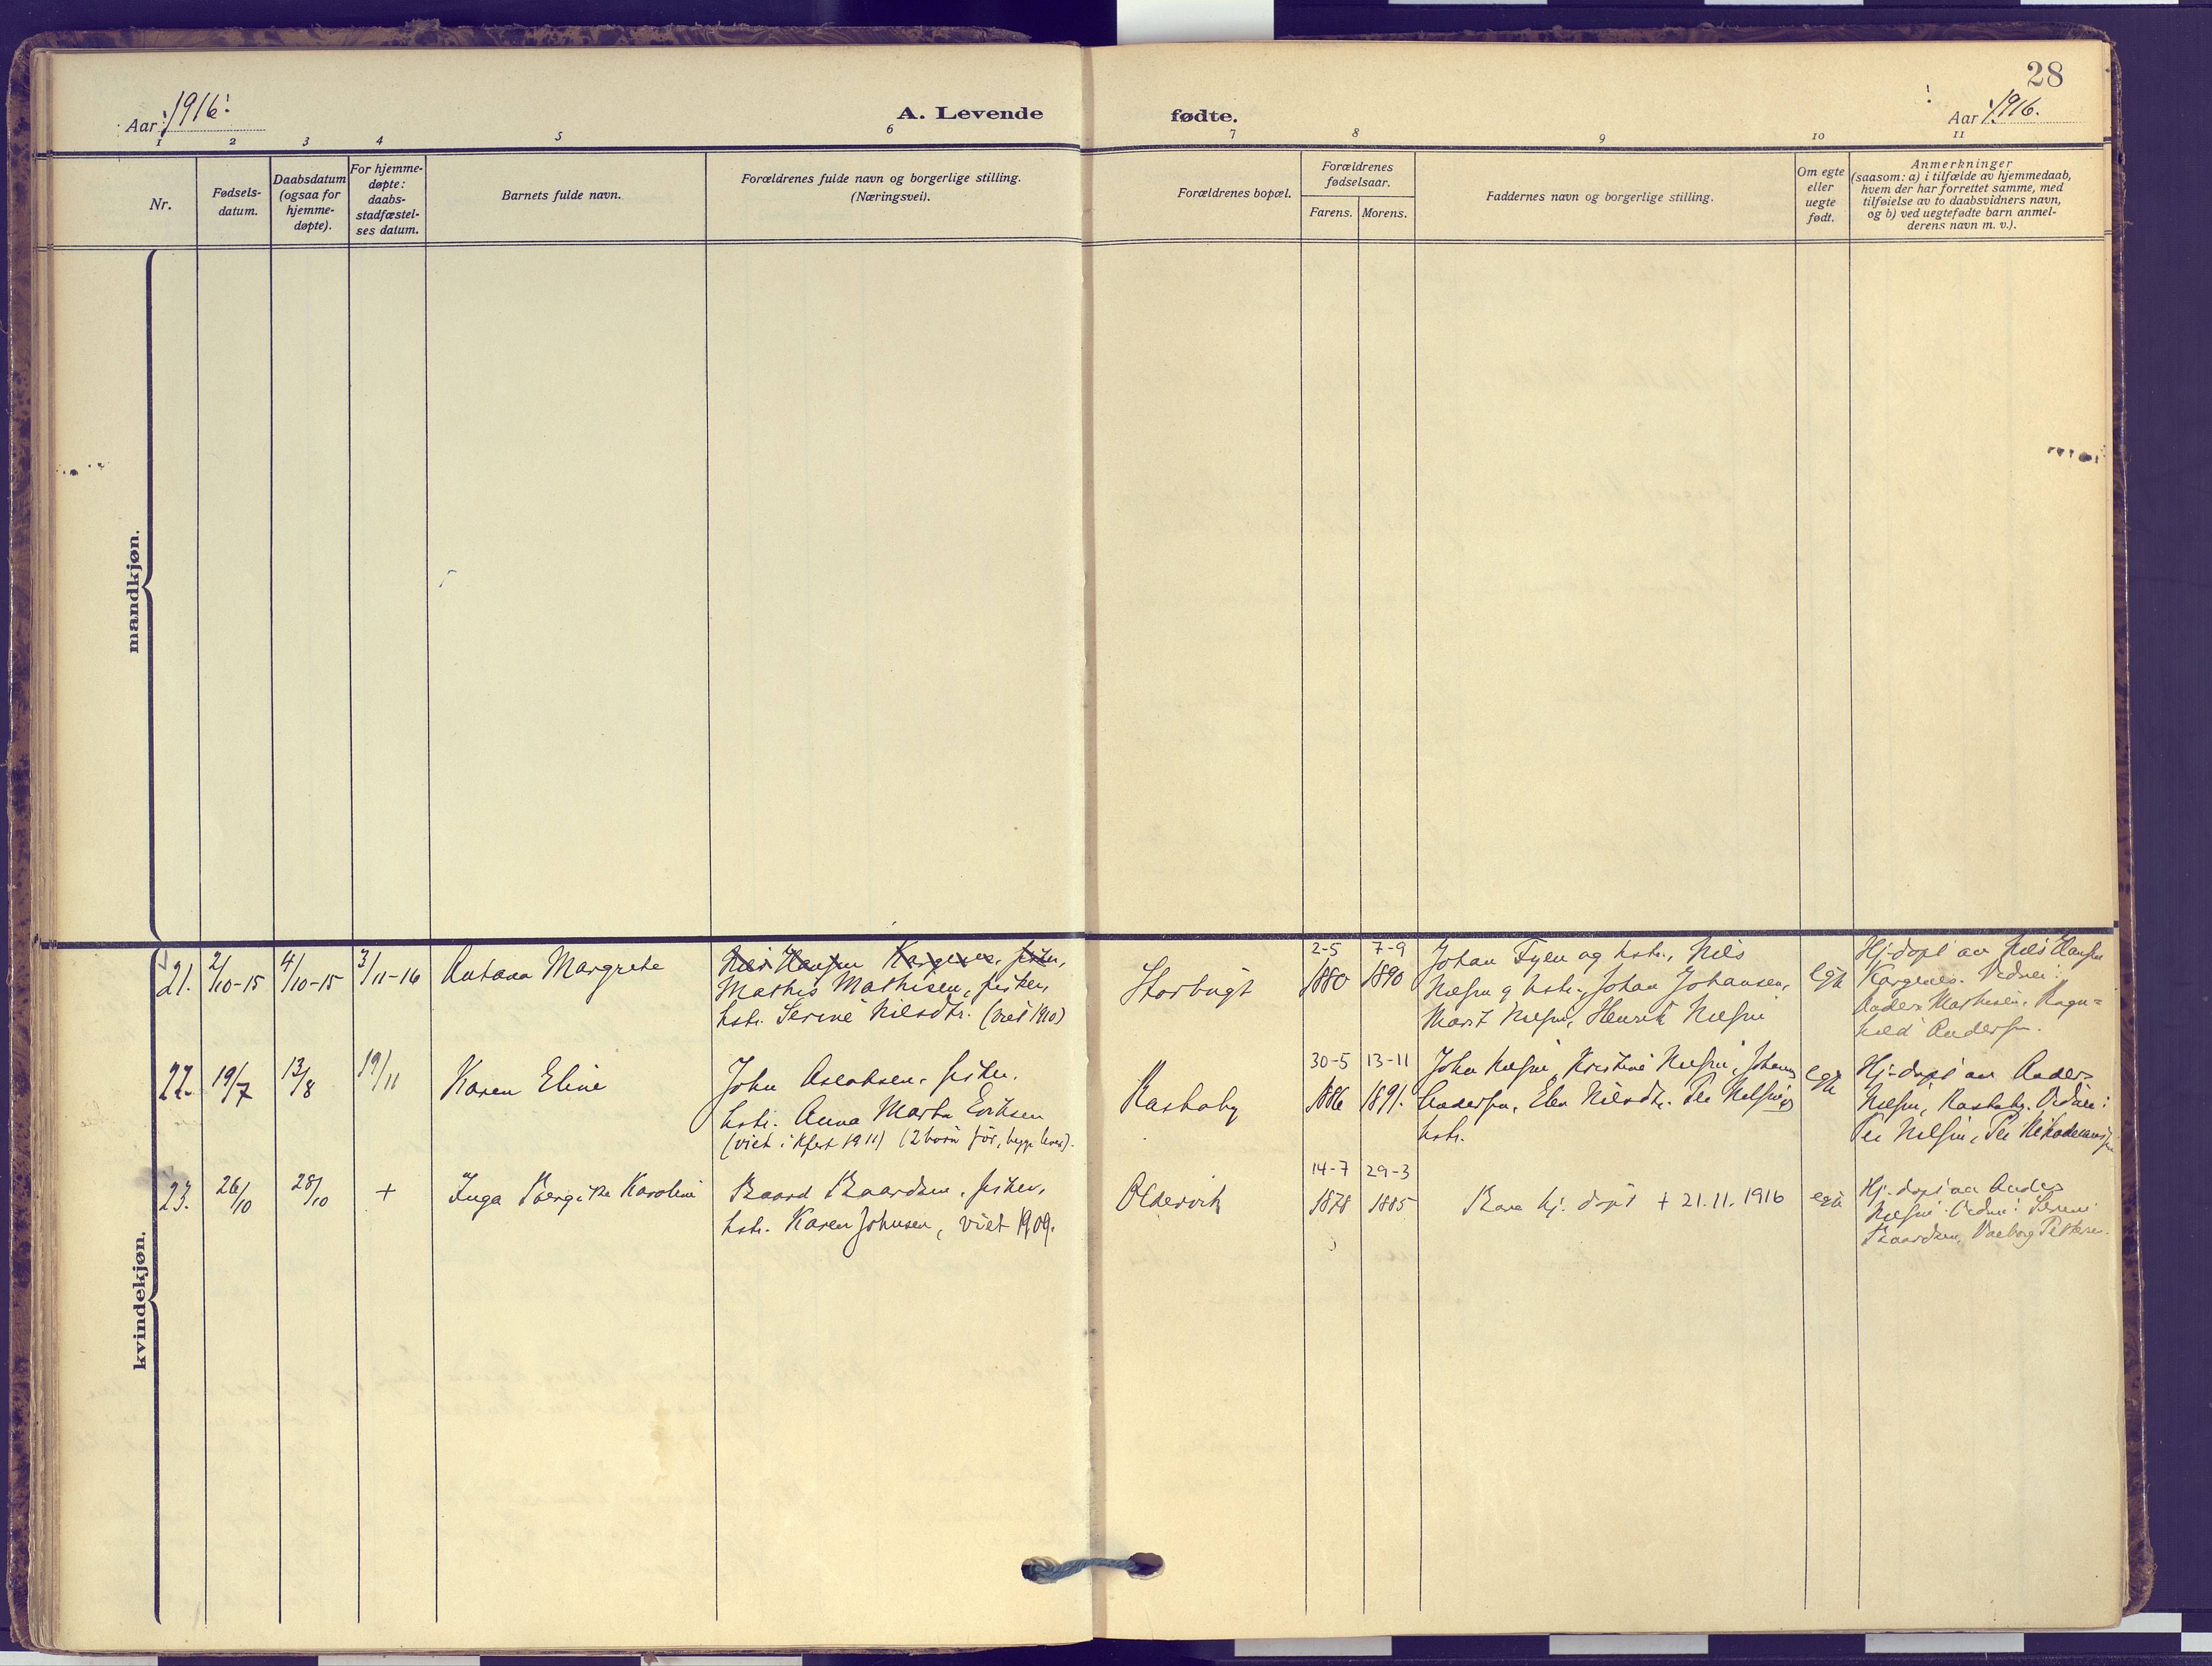 28
Aar 1916.
A. Levende
fødte.
Aar 1916.
1 2 3 4 5 6 7 8 9 10 11
Nr.
Fødsels-
datum.
Daabsdatum
(ogsaa for
hjemme-
døpte).
For hjemme-
døpte:
daabs-
stadfæstel-
ses datum.
Barnets fulde navn.
Forældrenes fulde navn og borgerlige stilling.
(Næringsvei).
Forældrenes bopæl.
Forældrenes
fødselsaar.
Farens. Morens.
Faddernes navn og borgerlige stilling.
Om egte
eller
uegte
født.
Anmerkninger
(saasom: a) i tilfælde av hjemmedaab,
hvem der har forrettet samme, med
tilføielse av to daabsvidners navn,
og b) ved uegtefødte barn anmel-
derens navn m. v.).
mandkjøn.
kvindekjøn.
21. 2/10-15 4/10-15 3/11-16 Antana Margrete
Nils Hansen Kargenes, fisker,
Mathis Mathisen, fisker,
hstr. Serine Nilsdtr. (viet 1910)
Storbugt
2-5 7-9
1880 1890
Johan Fylen og hstr., Nils
Nilsen og hstr., Johan Johansen,
Marit Nilsen, Henrik Nilsen
egte
Hj-døpt av Nils Hansen
Kargenes. Vidner:
Anders Mathisen, Ragn-
hild Andersen.
22. 19/7 13/8 19/11 Karen Eline
John Aslaksen, fisker,
hstr. Anna Marta Eriksen
(viet i Kfest 1911) (2 børn før, begge lever).
Kastaby
30-5 13-11
1886 1891.
John Nilsen, Kristine Nilsen, Johannes
Andersen, Elen Nilsdtr. Per Nilsen og
hstr.
egte
Hj-døpt av Anders
Nilsen, Vidner:
Per Nilsen, Per Nikodemusen
23. 26/10 28/10 + Inga Bergitte Karoline
Baard Baardsen, fisker,
hstr. Karen Johnsen, viet 1909.
Oldervik
14-7 29-3
1878 1885
Bare hj. døpt + 21.11.1916
egte
Hj. døpt av Anders
Nilsen. Vidner: Serine
Baardsen, Valborg Pettersen.